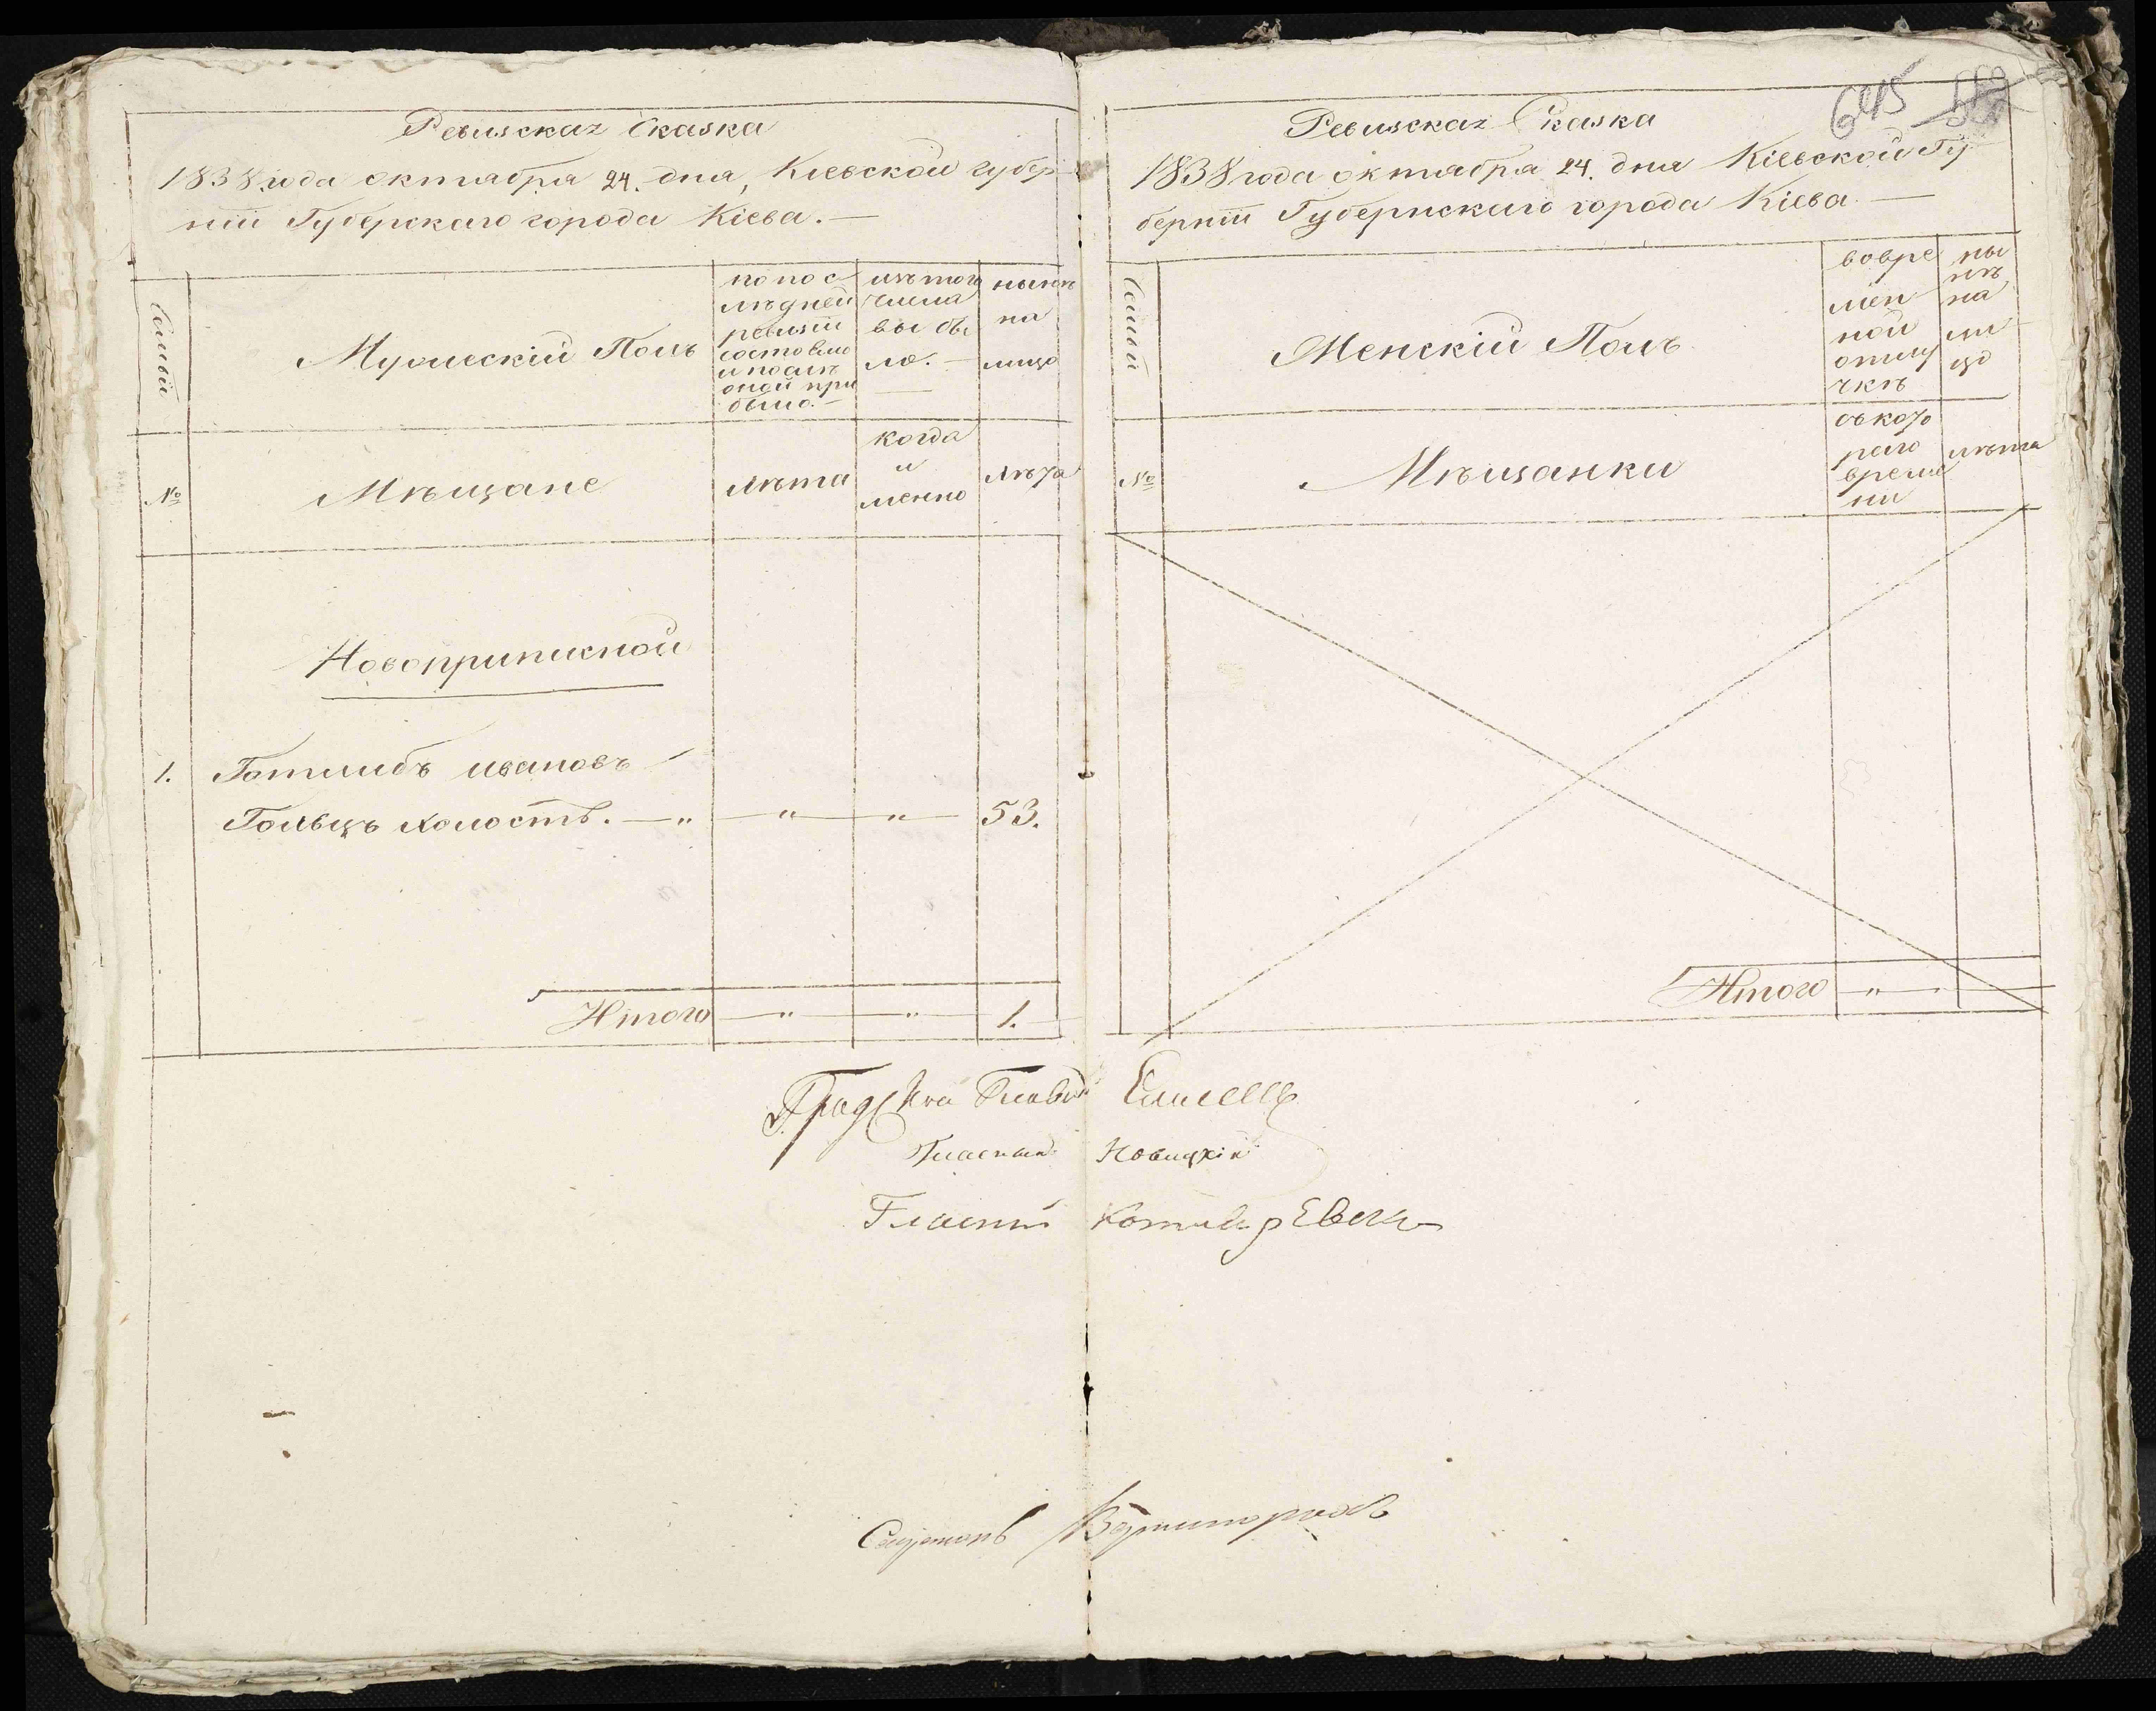 Ревизская Сказка
1838 года октября 24. дня, Кіевской губер
ніи Губерскаго города Кіева. —
Семьи
Мужескій Полъ
по пос
лѣдней
ревизіи
состояло
и послѣ
оной при
было. —
изъ того
числа
вы бы
ло. —
нынѣ
на
лицо
№
Мѣщане
лѣта
когда
и
менно
лѣта
Новоприписной
1. Готлибъ Ивановъ
Гольцъ холостъ. — " — " — " — 53.
Итого — " — " — 1.
645
Ревизская Сказка
1838 года октября 24. дня Кіевской Гу
берніи Губернскаго города Кіева. —
Семьи
Женскій Полъ
вовре
мен
ной
отлу
чкѣ
ны
нѣ
на
ли
цо
№
Мѣщанки
съ кото
раго
време
ни
лѣта
Итого — " —
Градской Глава Елисеевъ
Гласный Новицкій
Гласный